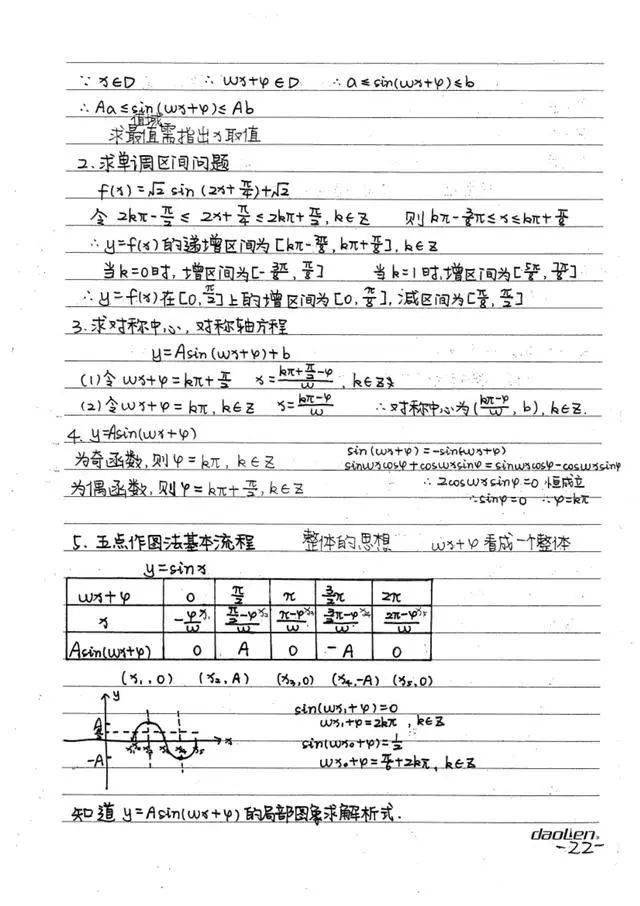 ∵ x∈D ∴ ωx+φ∈D ∴ a≤sin(ωx+φ)≤b
∴ Aa≤sin(ωx+φ)≤Ab
值域
求最值需指出x取值
2. 求单调区间问题
f(x)=√2 sin(2x+π/4)+√2
令 2kπ-π/2≤ 2x+π/4≤2kπ+π/2, k∈Z 则 kπ-3/8π≤x≤kπ+π/8
∴ y=f(x)的递增区间为[kπ-3π/8, kπ+π/8], k∈Z
当k=0时, 增区间为[-3π/8, π/8] 当k=1时, 增区间为[5π/8, 9π/8]
∴ y=f(x)在[0,π/2]上的增区间为[0,π/8], 减区间为[π/8, π/2]
3. 求对称中心, 对称轴方程
y=Asin(ωx+φ)+b
(1)令 ωx+φ=kπ+π/2 x=(kπ+π/2-φ)/ω, k∈Z
(2)令ωx+φ=kπ, k∈Z x=(kπ-φ)/ω ∴对称中心为((kπ-φ)/ω, b), k∈Z.
4. y=Asin(ωx+φ)
为奇函数, 则φ=kπ, k∈Z
sin(ωx+φ)=-sin(-ωx+φ)
sinωxcosφ+cosωxsinφ=sinωxcosφ-cosωxsinφ
为偶函数, 则φ=kπ+π/2, k∈Z
∴ 2cosωxsinφ=0 恒成立
∴sinφ=0 ∴φ=kπ
5. 五点作图法基本流程 整体的思想 ωx+φ看成一个整体
y=sinx
ωx+φ 0 π/2 π 3/2π 2π
x -φ/ω x₁ (π/2-φ)/ω x₂ (π-φ)/ω x₃ (3/2π-φ)/ω x₄ (2π-φ)/ω x₅
Asin(ωx+φ) 0 A 0 -A 0
(x₁,0) (x₂,A) (x₃,0) (x₄,-A) (x₅,0)
y
A
x₁ x₂ x₃ x₄ x₅ x
-A
sin(ωx₁+φ)=0
ωx₁+φ=2kπ, k∈Z
sin(ωx₀+φ)=1/2
ωx₀+φ=π/6+2kπ, k∈Z
知道 y=Asin(ωx+φ)的局部图象求解析式.
daolien
-22-